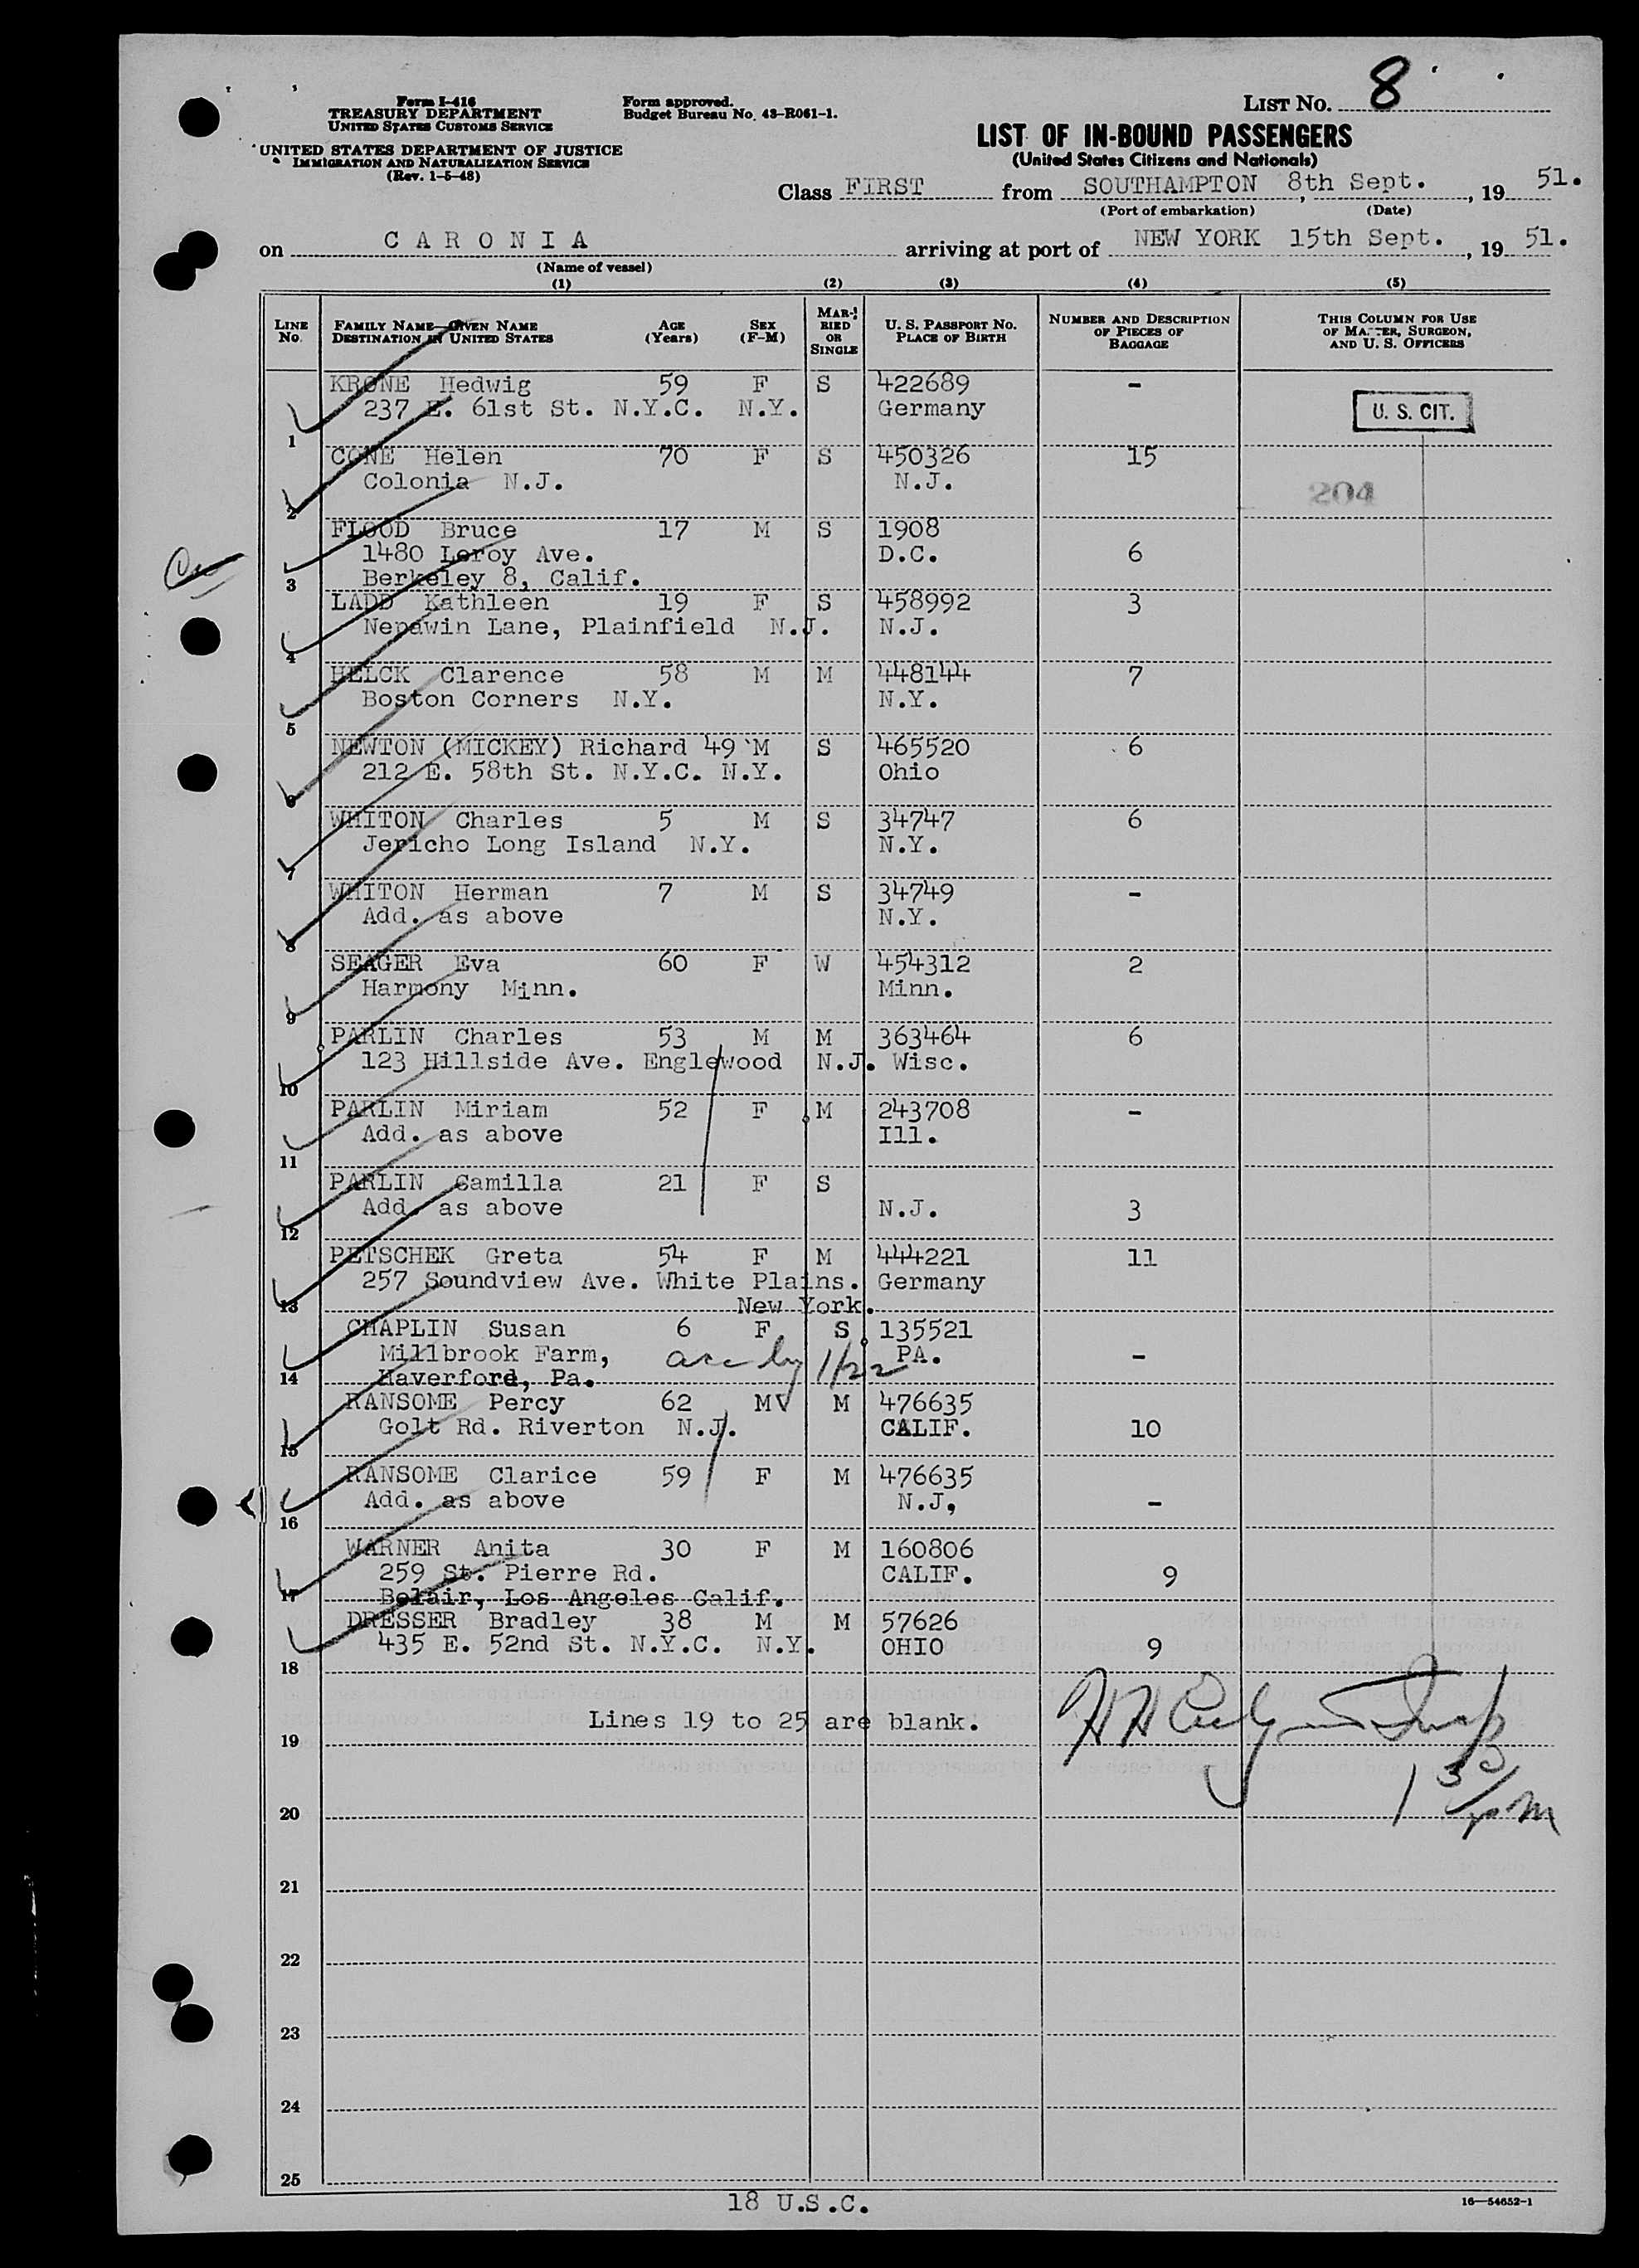 Form I-416
TREASURY DEPARTMENT
UNITED STATES CUSTOMS SERVICE
UNITED STATES DEPARTMENT OF JUSTICE
IMMIGRATION AND NATURALIZATION SERVICE
(Rev. 1-5-48)
Form approved.
Budget Bureau No. 43-R061-1.
LIST NO. 8
LIST OF IN-BOUND PASSENGERS
(United States Citizens and Nationals)
Class FIRST from SOUTHAMPTON 8th Sept., 19 51.
(Port of embarkation) (Date)
on CARONIA arriving at port of NEW YORK 15th Sept., 19 51.
(Name of vessel)
(1) (2) (3) (4) (5)
LINE NO. FAMILY NAME—GIVEN NAME DESTINATION IN UNITED STATES AGE (Years) SEX (F-M) MARRIED OR SINGLE U. S. PASSPORT NO. PLACE OF BIRTH NUMBER AND DESCRIPTION OF PIECES OF BAGGAGE THIS COLUMN FOR USE OF MASTER, SURGEON, AND U. S. OFFICERS
KRONE Hedwig 59 F S 422689 -
237 E. 61st St. N.Y.C. N.Y. Germany U. S. CIT.
1
CONE Helen 70 F S 450326 15
Colonia N.J. N.J.
204
2
FLOOD Bruce 17 M S 1908
1480 Leroy Ave. D.C. 6
3 Berkeley 8, Calif.
LADD Kathleen 19 F S 458992 3
Nepawin Lane, Plainfield N.J. N.J.
4
HELCK Clarence 58 M M 448144 7
Boston Corners N.Y. N.Y.
5
NEWTON (MICKEY) Richard 49 M S 465520 6
212 E. 58th St. N.Y.C. N.Y. Ohio
6
WHITON Charles 5 M S 34747 6
Jericho Long Island N.Y. N.Y.
7
WHITON Herman 7 M S 34749 -
Add. as above N.Y.
8
SEAGER Eva 60 F W 454312 2
Harmony Minn. Minn.
9
PARLIN Charles 53 M M 363464 6
123 Hillside Ave. Englewood N.J. Wisc.
10
PARLIN Miriam 52 F M 243708 -
Add. as above Ill.
11
PARLIN Camilla 21 F S
Add. as above N.J. 3
12
PETSCHEK Greta 54 F M 444221 11
257 Soundview Ave. White Plains. Germany
13 New York.
CHAPLIN Susan 6 F S 135521
Millbrook Farm, acc by 1/22 PA. -
14 Haverford, Pa.
RANSOME Percy 62 M M 476635
Golt Rd. Riverton N.J. CALIF. 10
15
RANSOME Clarice 59 F M 476635
Add. as above N.J, -
16
WARNER Anita 30 F M 160806
259 St. Pierre Rd. CALIF. 9
17 Belair, Los Angeles Calif.
DRESSER Bradley 38 M M 57626
435 E. 52nd St. N.Y.C. N.Y. OHIO 9
18
Lines 19 to 25 are blank.
19
1 30 pm
20
21
22
23
24
25
18 U.S.C.
16—54652-1